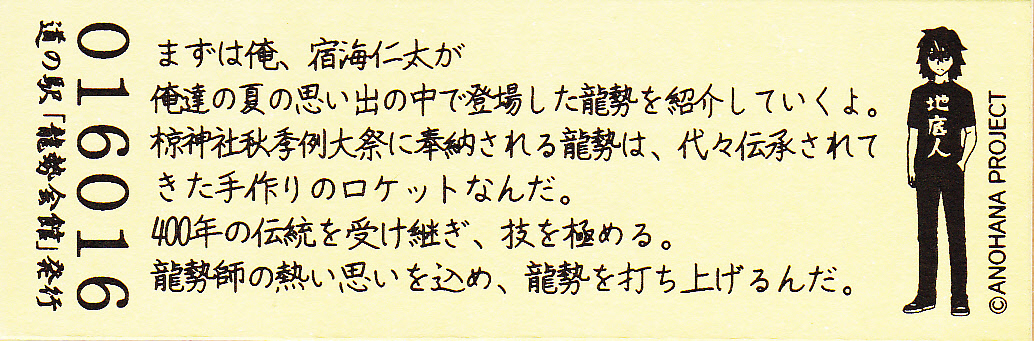 まずは俺、宿海仁太が
俺達の夏の思い出の中で登場した龍勢を紹介していくよ。
椋神社秋季例大祭に奉納される龍勢は、代々伝承されて
きた手作りのロケットなんだ。
400年の伝統を受け継ぎ、技を極める。
龍勢師の熱い思いを込め、龍勢を打ち上げるんだ。
016016
道の駅「龍勢会館」発行
地底人
©ANOHANA PROJECT